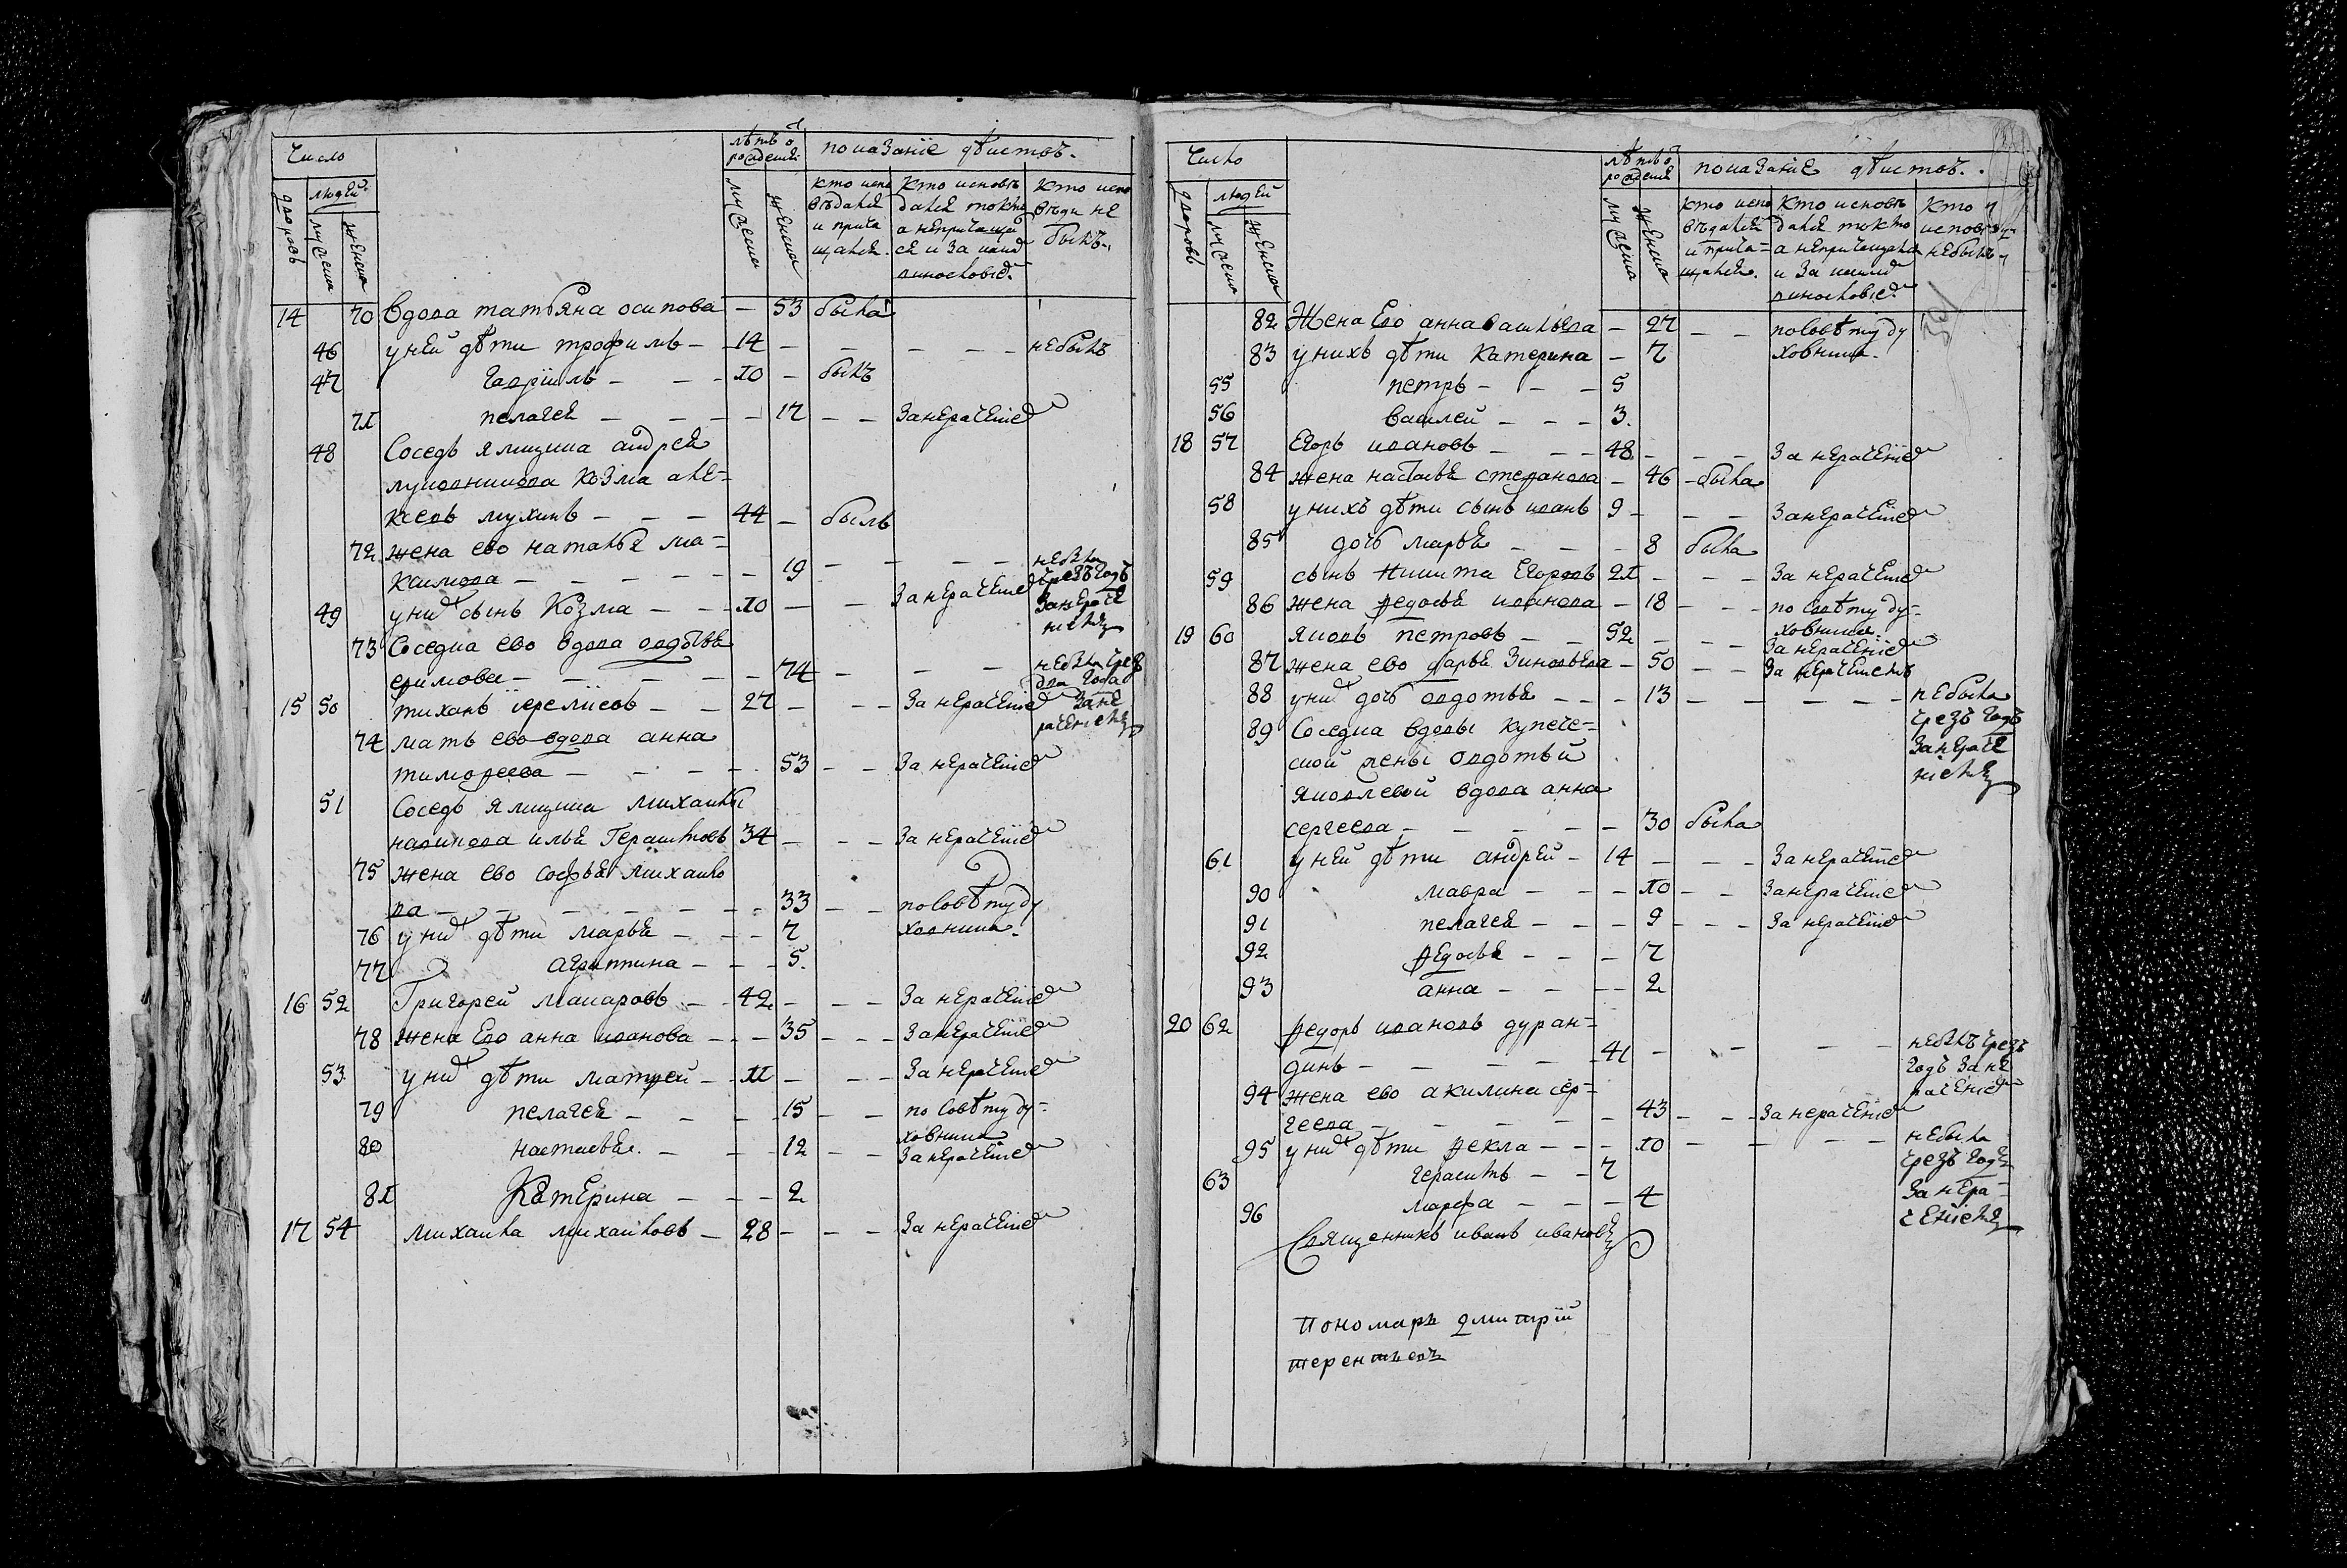 Число
лѣтъ ѿ рожденія
показаніе дѣиствъ.
дворовъ
людей
мужеска
женска
мужеска
женска
кто испо вѣдался и прича щался.
кто исповѣ дался токмо а непричащал ся и за каки виновства
кто испо вѣди не былъ
14 70 вдова татьяна осипова - 53 была
46 у ней дѣти трофимъ - - 14 - - - - - небылъ
47 гаврiилъ - - - 10 - былъ
71 пелагея - - - - 17 - - занерачениемъ
48 Соседъ ямщика андрея
лукоянникова козма але=
ксеевъ мухинъ - - - 44 - былъ
72 жена ево наталья ма=
каимова - - - - - - 19 - - - - небыла чрезъ годъ
49 у них сынъ Козма - - - 10 - - занерачениемъ занераче ниемъ
73 Соседка ево вдова авдотья
ефимова - - - - - - 74 - - - небыла чрез два года
15 50 тихонъ иереміевъ - - 27 - - - за нерачениемъ зане рачениемъ
74 мать ево вдова анна
тимофеева - - - - 53 - - за нерачениемъ
51 Соседъ ямщика михаилы
новикова илья Герасимовъ 34 - - - за нерачениемъ
75 жена ево софья михаило
ва - - - - - - - 33 - - посовѣту ду
76 у них дѣти марья - - - 7 ховника.
77 агриппина - - - 5.
16 52 Григорей макаровъ - - 42 - - - за нерачениемъ
78 жена Ево анна иванова - - - 35 - - - занерачениемъ
53 у них дѣти матфей - - 11 - - - за нерачениемъ
79 пелагея - - - - 15 - - по совѣту ду=
ховника
80 настасья. - - - 12 - - за нерачениемъ
81 Катерина - - - 2
17 54 михаила михаиловъ - 28 - - - за нерачениемъ
Число
лѣтъ ѿ рожденія
показание дѣиствъ.
дворовъ
людей
мужеска
женска
мужеска
женска
кто испо вѣдался и прича= щался.
Кто исповѣ дался токмо а непричащался и за каки виновства
Кто у исповѣди небылъ
82 Жена Ево анна савельева - 27 - - посовѣту ду
83 у нихъ дѣти Катерина - 7 ховника.
55 петръ - - - 5
56 василей - - - 3.
18 57 Егоръ ивановъ - - - 48 - - - за нерачениемъ
84 жена настасья степанова - 46 - была
58 у нихъ дѣти сынъ иванъ 9 - - - занерачениемъ
85 дочь марья - - - 8 была
59 сынъ никита Егоровъ 21 - - - за нерачениемъ
86 жена федосья иванова - 18 - - - по совѣту ду=
ховника.
19 60 яковъ петровъ - - 52 - - - за нерачениемъ
87 жена ево дарья Зиновьева - 50 - - за нерачениемъ
88 у них дочь авдотья - - - 13 - - - - - небыла чрезъ годъ занераче ниемъ
89 Соседка вдовы купече=
ской жены авдотьи
яковлевой вдова анна
сергеева - - - - - 30 была
61 у ней дѣти андрей - 14 - - - за нерачениемъ
90 мавра - - - 10 - - занерачениемъ
91 пелагея - - - 9 - - - за нерачениемъ
92 федосья - - - 7
93 анна - - - - 2
20 62 федоръ ивановъ дуран=
динъ - - - - - 41 - - - - небылъ чрезъ годъ зане рачениемъ
94 жена ево акилина сер=
геева - - - - - - 43 - - - за нерачениемъ
95 у них дѣти фекла - - - 10 - - - - небыла чрезъ годъ за нера= чениемъ
63 герасимъ - - 7
96 марфа - - - - 4
Священникъ иванъ ивановъ
Пономарь дмитрій
терентьевъ